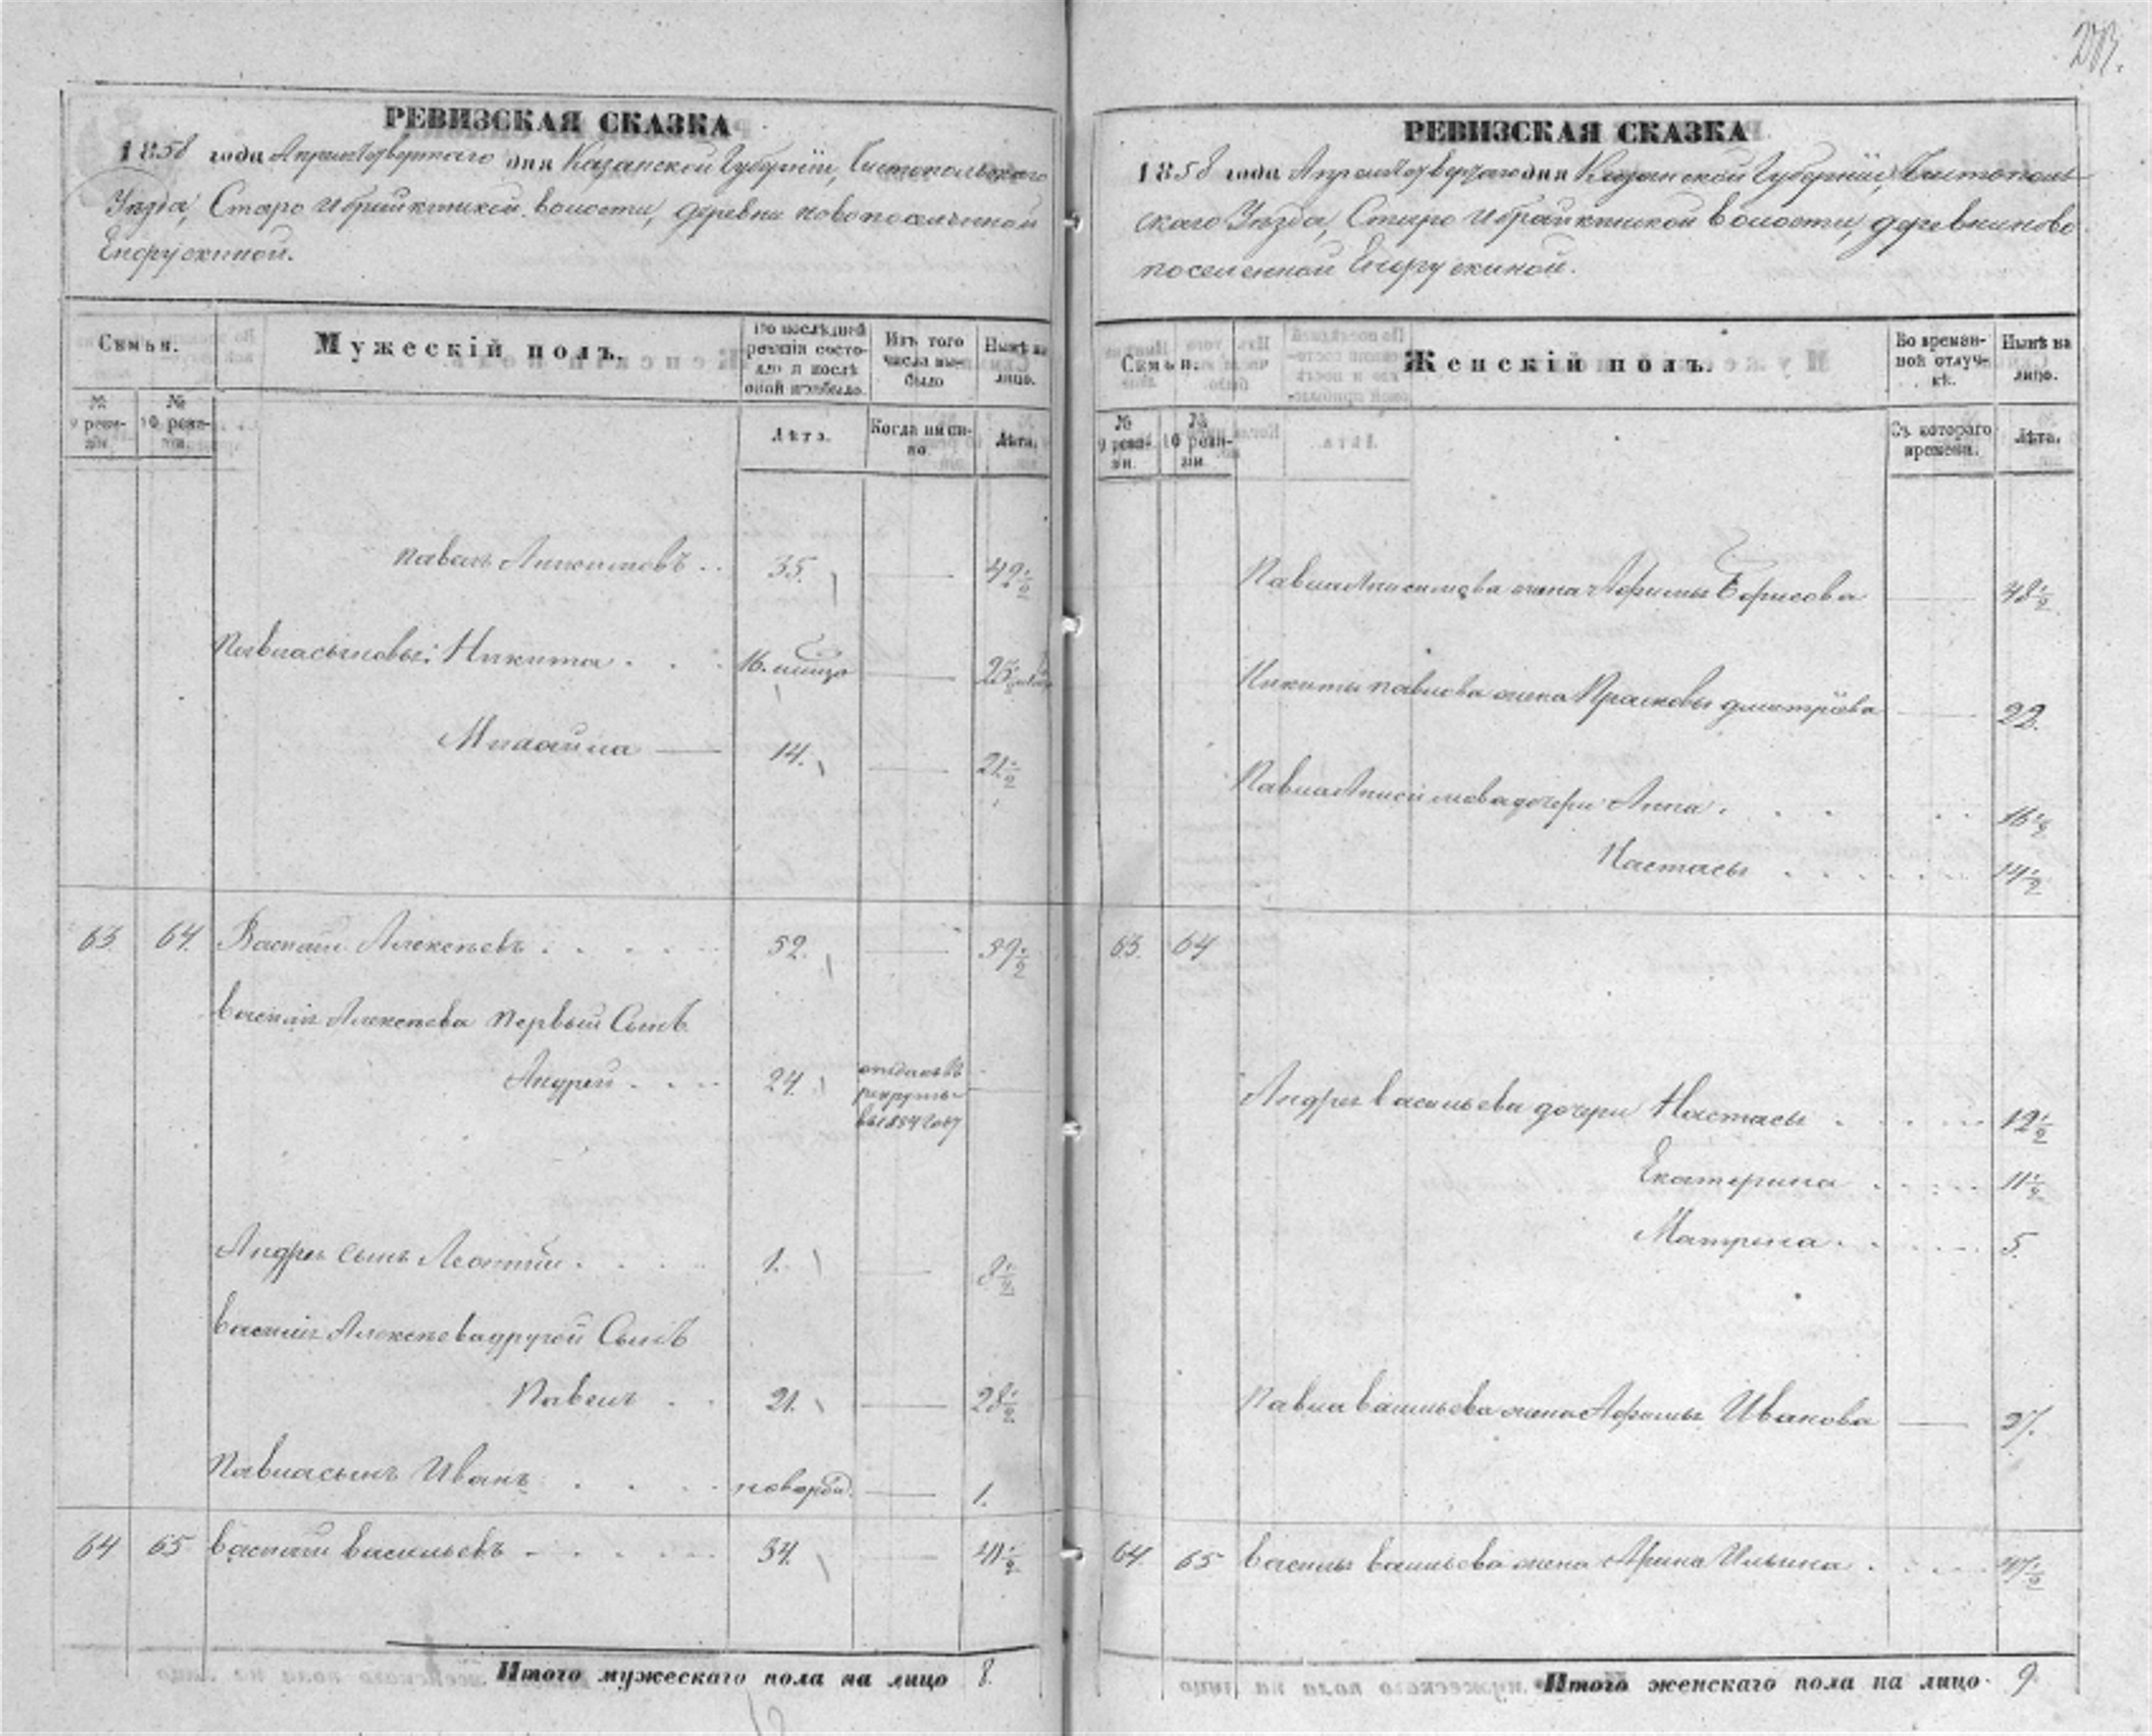 РЕВИЗСКАЯ СКАЗКА
1858 года Апреля Четвертаго дня Казанской Губернїи, Чистопольскаго
Уѣзда, Старо Ибрайкинской волости, деревни новопоселенной
Енорускиной.
Семьи.
Мужескій полъ.
По послѣдней ревизіи состояло и послѣ оной прибыло.
Изъ того числа выбыло
Нынѣ на лицо.
№ 9 ревизіи.
№ 10 ревизіи.
Лѣта.
Когда именно.
Лѣта.
Павелъ Анисимовъ . . 35. 42½
Павла сыновья: Никита . . . 16.
Михайла 14. 21½
63 64. Василій Алексѣевъ . . . . . 52. 59½
Василія Алексѣева первый Сынъ
Андрей . . . 24. отданъ въ рекруты въ 1854 году
Андрея сынъ Леонтий . . . . 1. 8½
Василія Алексѣева другой Сынъ
Павелъ . . 21. 28½
Павла сынъ Иванъ . . . . новорож. 1.
64 65 Василий Васильевъ - . . . . 34. 41½
Итого мужескаго пола на лицо 8.
РЕВИЗСКАЯ СКАЗКА
1858 года Апреля Четвертаго дня Казанской Губернїи, Чистополь-
скаго Уѣзда, Старо Ибрайкинской волости, деревни ново
поселенной Енорускиной.
Семьи.
Женскій полъ.
Во временной отлучкѣ.
Нынѣ на лицо.
№ 9 ревизіи.
№ 10 ревизіи.
Съ котораго времени.
Лѣта.
Павла Анисимова жена Афимья Борисова 48½
Никиты Павлова жена Прасковья Дмитрїева 22.
Павла Анисимова дочери Анна . . . . . 16½
Настасья . . . . . . 14½
63. 64
Андрея Васильева дочери Настасья . . . . . 12½
Екатерина . . . . . 11½
Матрена . . . . . . 5.
Павла Васильева жена Афимья Иванова 27.
64 65 Василья Васильева жена Арина Ильина . . . . . 47½
Итого женскаго пола на лицо 9.